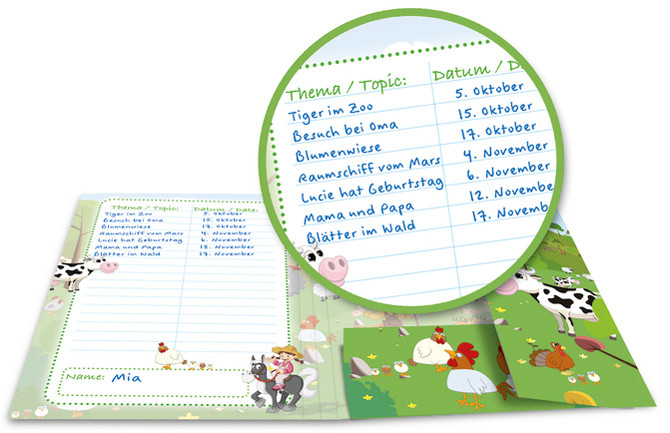 Thema / Topic: Datum / D
Tiger im Zoo 5. Oktober
Besuch bei Oma 15. Oktober
Blumenwiese 17. Oktober
Raumschiff vom Mars 4. November
Lucie hat Geburtstag 6. November
Mama und Papa 12. Novembe
Blätter im Wald 17. Novemb
Thema / Topic: Datum / Date:
Tiger im Zoo 5. Oktober
Besuch bei Oma 15. Oktober
Blumenwiese 17. Oktober
Raumschiff vom Mars 4. November
Lucie hat Geburtstag 6. November
Mama und Papa 12. November
Blätter im Wald 17. November
Name: Mia